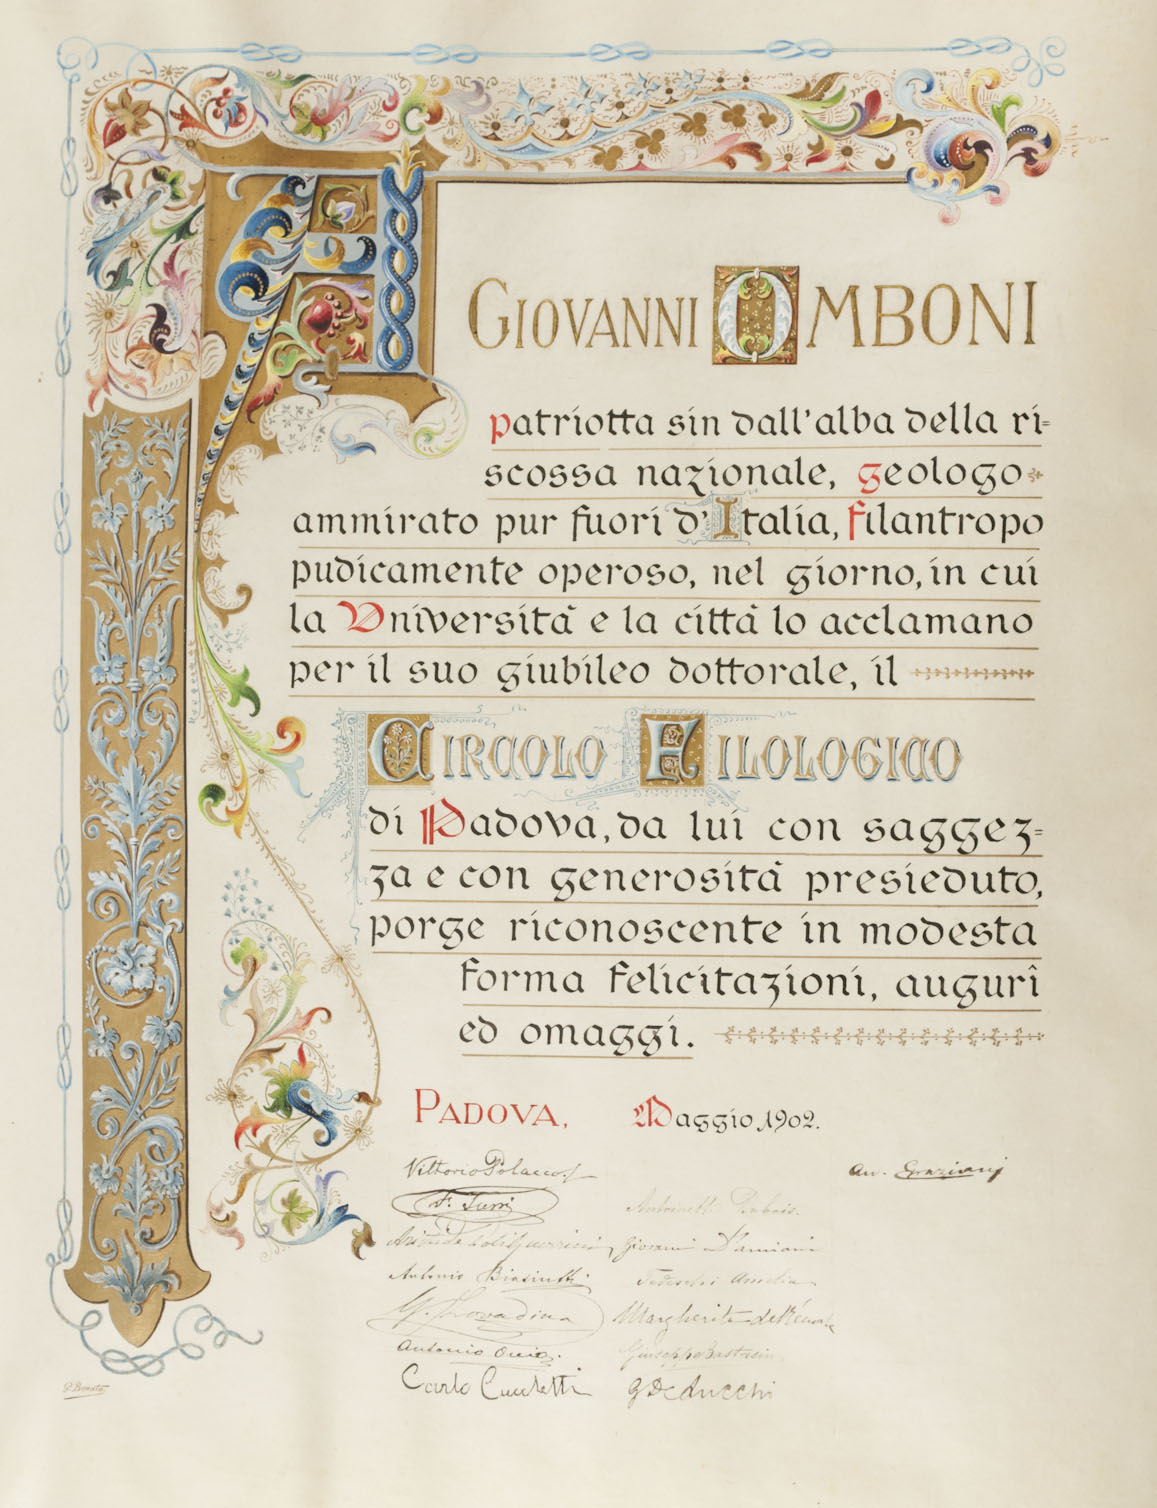 A
GIOVANNI OMBONI
patriotta sin dall'alba della ri=
scossa nazionale, geologo
ammirato pur fuori d'Italia, filantropo
pudicamente operoso, nel giorno, in cui
la Università e la città lo acclamano
per il suo giubileo dottorale, il
CIRCOLO FILOLOGICO
di Padova, da lui con saggez=
za e con generosità presieduto,
porge riconoscente in modesta
forma felicitazioni, augurî
ed omaggi.
PADOVA, Maggio 1902.
Vittorio Polacco
Av. Graziani
F. Turri
Antonietta
Giovanni Damiani
Antonio
Tedeschi Amelia
G. Lovadina
Margherita
Antonio
Giuseppe
Carlo
G De Lucchi